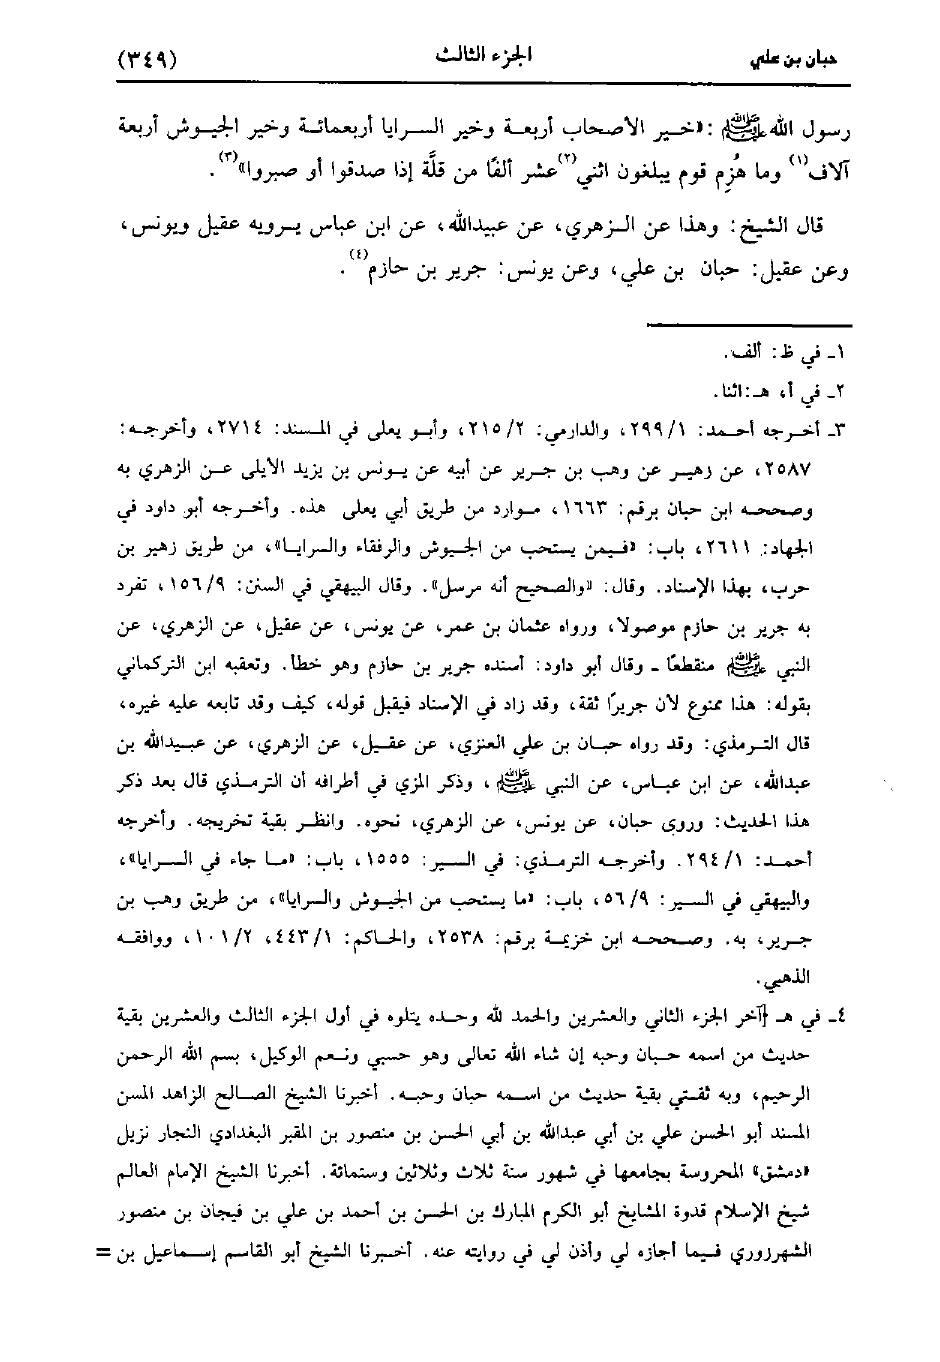 حبان بن علي الجزء الثالث (٣٤٩)
رسول الله ﷺ: «خير الأصحاب أربعة وخير السرايا أربعمائة وخير الجيوش أربعة
آلاف(١) وما هُزِم قوم يبلغون اثني(٢) عشر ألفًا من قلَّة إذا صدقوا أو صبروا»(٣).
قال الشيخ: وهذا عن الزهري، عن عبيدالله، عن ابن عباس يرويه عقيل ويونس،
وعن عقيل: حبان بن علي، وعن يونس: جرير بن حازم(٤).
١ـ في ظ: ألف.
٢ـ في أ، هـ: اثنا.
٣ـ أخرجه أحمد: ٢٩٩/١، والدارمي: ٢١٥/٢، وأبو يعلى في المسند: ٢٧١٤، وأخرجه:
٢٥٨٧، عن زهير عن وهب بن جرير عن أبيه عن يونس بن يزيد الأيلى عن الزهري به
وصححه ابن حبان برقم: ١٦٦٣، موارد من طريق أبي يعلى هذه. وأخرجه أبو داود في
الجهاد: ٢٦١١، باب: «فيمن يستحب من الجيوش والرفقاء والسرايا»، من طريق زهير بن
حرب، بهذا الإسناد. وقال: «والصحيح أنه مرسل». وقال البيهقي في السنن: ١٥٦/٩، تفرد
به جرير بن حازم موصولا، ورواه عثمان بن عمر، عن يونس، عن عقيل، عن الزهري، عن
النبي ﷺ منقطعًا ـ وقال أبو داود: أسنده جرير بن حازم وهو خطأ. وتعقبه ابن التركماني
بقوله: هذا ممنوع لأن جريرًا ثقة، وقد زاد في الإسناد فيقبل قوله، كيف وقد تابعه عليه غيره،
قال الترمذي: وقد رواه حبان بن علي العنزي، عن عقيل، عن الزهري، عن عبيدالله بن
عبدالله، عن ابن عباس، عن النبي ﷺ، وذكر المزي في أطرافه أن الترمذي قال بعد ذكر
هذا الحديث: وروى حبان، عن يونس، عن الزهري، نحوه. وانظر بقية تخريجه. وأخرجه
أحمد: ٢٩٤/١. وأخرجه الترمذي: في السير: ١٥٥٥، باب: «ما جاء في السرايا»،
والبيهقي في السير: ٥٦/٩، باب: «ما يستحب من الجيوش والسرايا»، من طريق وهب بن
جرير، به. وصححه ابن خزيمة برقم: ٢٥٣٨، والحاكم: ٤٤٣/١، ١٠١/٢، ووافقه
الذهبي.
٤ـ في هـ [آخر الجزء الثاني والعشرين والحمد لله وحده يتلوه في أول الجزء الثالث والعشرين بقية
حديث من اسمه حبان وحبه إن شاء الله تعالى وهو حسبي ونعم الوكيل، بسم الله الرحمن
الرحيم، وبه ثقتي بقية حديث من اسمه حبان وحبه. أخبرنا الشيخ الصالح الزاهد المسن
المسند أبو الحسن علي بن أبي عبدالله بن أبي الحسن بن منصور بن المقبر البغدادي النجار نزيل
«دمشق» المحروسة بجامعها في شهور سنة ثلاث وثلاثين وستمائة. أخبرنا الشيخ الإمام العالم
شيخ الإسلام قدوة المشايخ أبو الكرم المبارك بن الحسن بن أحمد بن علي بن فيجان بن منصور
الشهرزوري فيما أجازه لي وأذن لي في روايته عنه. أخبرنا الشيخ أبو القاسم إسماعيل بن =